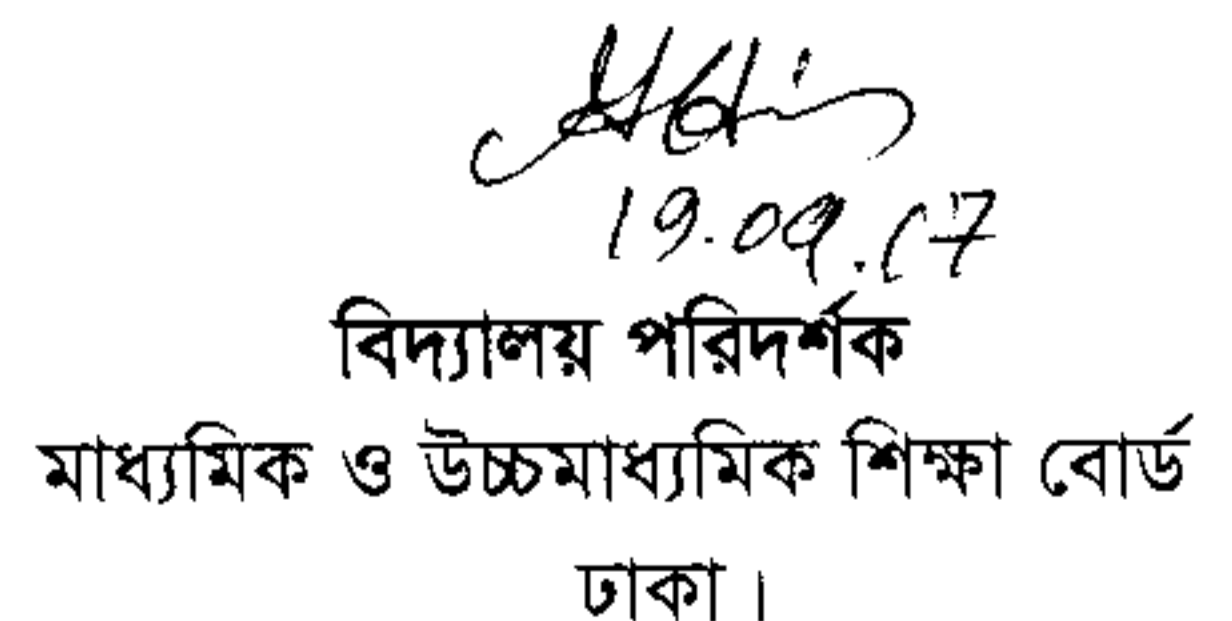 19.09.17
বিদ্যালয় পরিদর্শক
মাধ্যমিক ও উচ্চমাধ্যমিক শিক্ষা বোর্ড
ঢাকা।